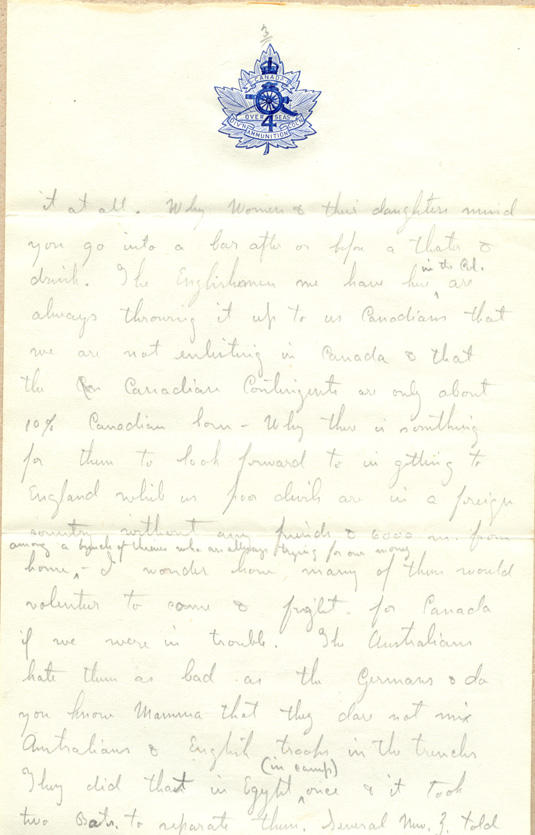 3
CANADA
OVER SEAS
4
AMMUNITION
it at all. Why Women & their daughters mind
you go into a bar after or before a theater &
drink. The Englishmen we have here in the Col. are
always throwing it up to us Canadians that
we are not enlisting in Canada & that
the Canadian Contingents are only about
10% Canadian born – Why there is something
for them to look forward to in getting to
England while us poor devils are in a foreign
country without any friends & 6000 m. from
among a bunch of thieves who are always trying for our money
home, – I wonder how many of them would
volunteer to come & fight for Canada
if we were in trouble. The Australians
hate them as bad as the Germans & do
you know Mamma that they dare not mix
Australians & English troops in the trenches
They did that in Egypt (in camp) once & it took
two Bats. to separate them. Several told